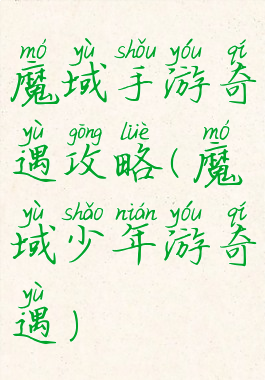 mó yù shǒu yóu qí
魔域手游奇
yù gōng lüè mó
遇攻略(魔
yù shǎo nián yóu qí
域少年游奇
yù
遇)